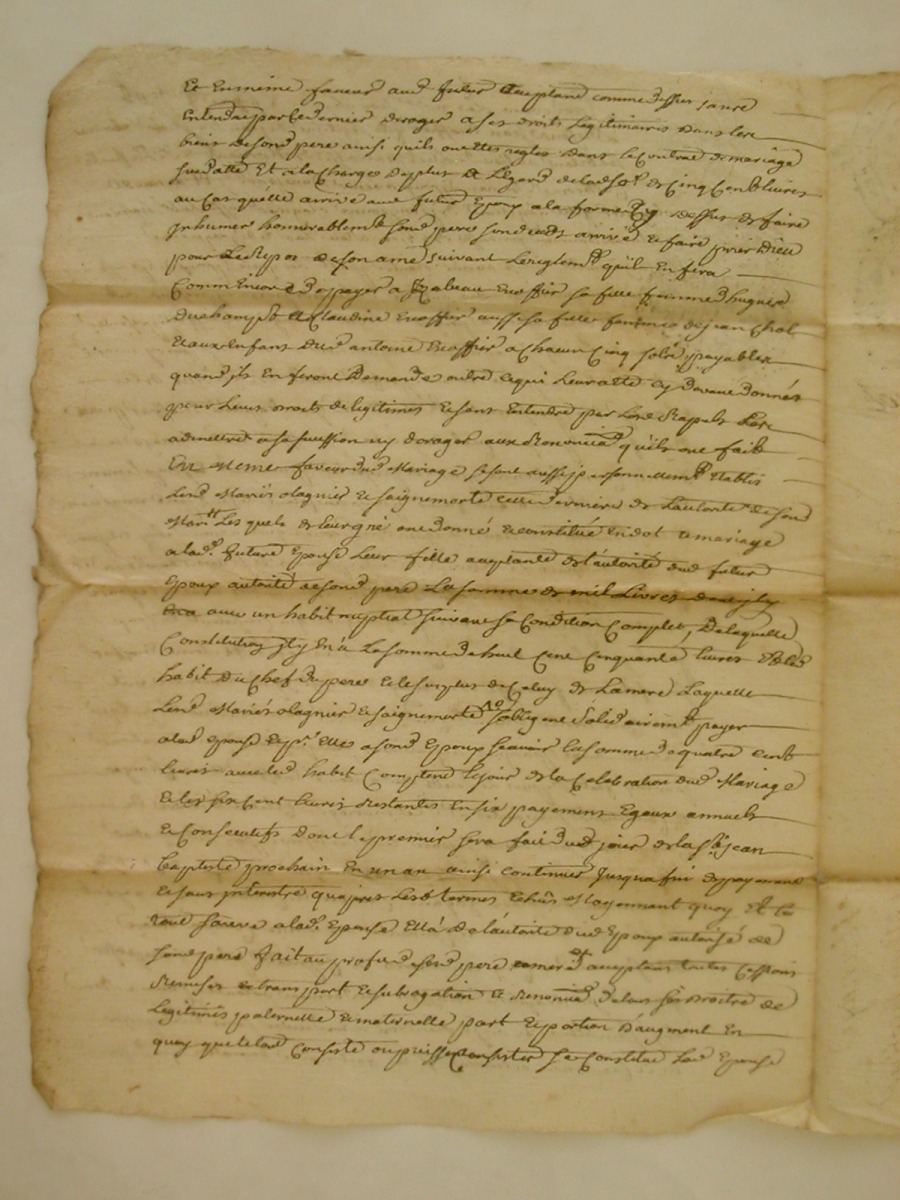 Et en meme faveur aud futur acceptant comme dessus sans
entendre par le dernier deroger a ses droits legitimaires dans les
biens de sond pere ainsi quils ont ettes regles dans le contrat de mariage
susdatte Et a la charge de plus a legard de lad so.e de cinq cent livres
au cas quelle arrive aud futur epoux a la forme cy dessus de faire
inhumer honnorablemt sond pere son deces arrivé et faire prier dieu
pour le repos de son ame suivant le reglemt quil en fera
comm encore de payer a Izabeau Escoffier sa fille femme d hugues
duchampt et Claudine Escoffier aussi sa fille femme de jean Chol
et aux enfant dud antoine Escoffier a chacun cinq sols payables
quand ils en feront demande outre ce qui leur a ette cy devant donnés
pour leurs droits de legitimes et sans entendre par lesd Rapels les
admettre a sa succession ny deroger aux renonciaõns quils ont fait
En meme faveur dud Mariage se sont aussi personnellemt etablis
Lesd Mariés olagnier et saignemorte cette derniere de lautorité de sond
Mari Lesquels de leur gré ont donné et constitué en dot et mariage
a lad. future Epouse leur fille acceptante de lautorité dud futur
Epoux autorité de sond pere La somme de mil Livres
avec un habit nuptial suivant sa condition complet, De laquelle
constitution il y en a la somme de huit cent cinquante livres et led
habit du chef du pere et le surplus de celuy de la mere Laquelle
Lesd Mariés olagnier et saignemorte sobligent solidairemt payer
a lad epouse et pr. elle a sond Epoux scavoir la somme de quatre cent
livres avec led habit complet le jour de la celebration dud Mariage
et les six cent livres restantes en six payement egaux annuels
et consecutifs dont le premier sera fait dud jour de la st jean
baptiste prochain en un an ainsi continuer jusqua fin de payement
et sans interestre quapres lesd termes echus Moyennant quoy Et le
tout sauvé a lad. Epouse Ella de lautorité dud Epoux autorisé de
sond pere fait au profit de sesd pere et mere acceptans toutes cessions
remises transport et subrogation et renonciaõn de tous ses droits de
legitimes paternelle et maternelle part et portion daugment en
quoy que le tout consiste ou puisse consister se constitue lad Epouse